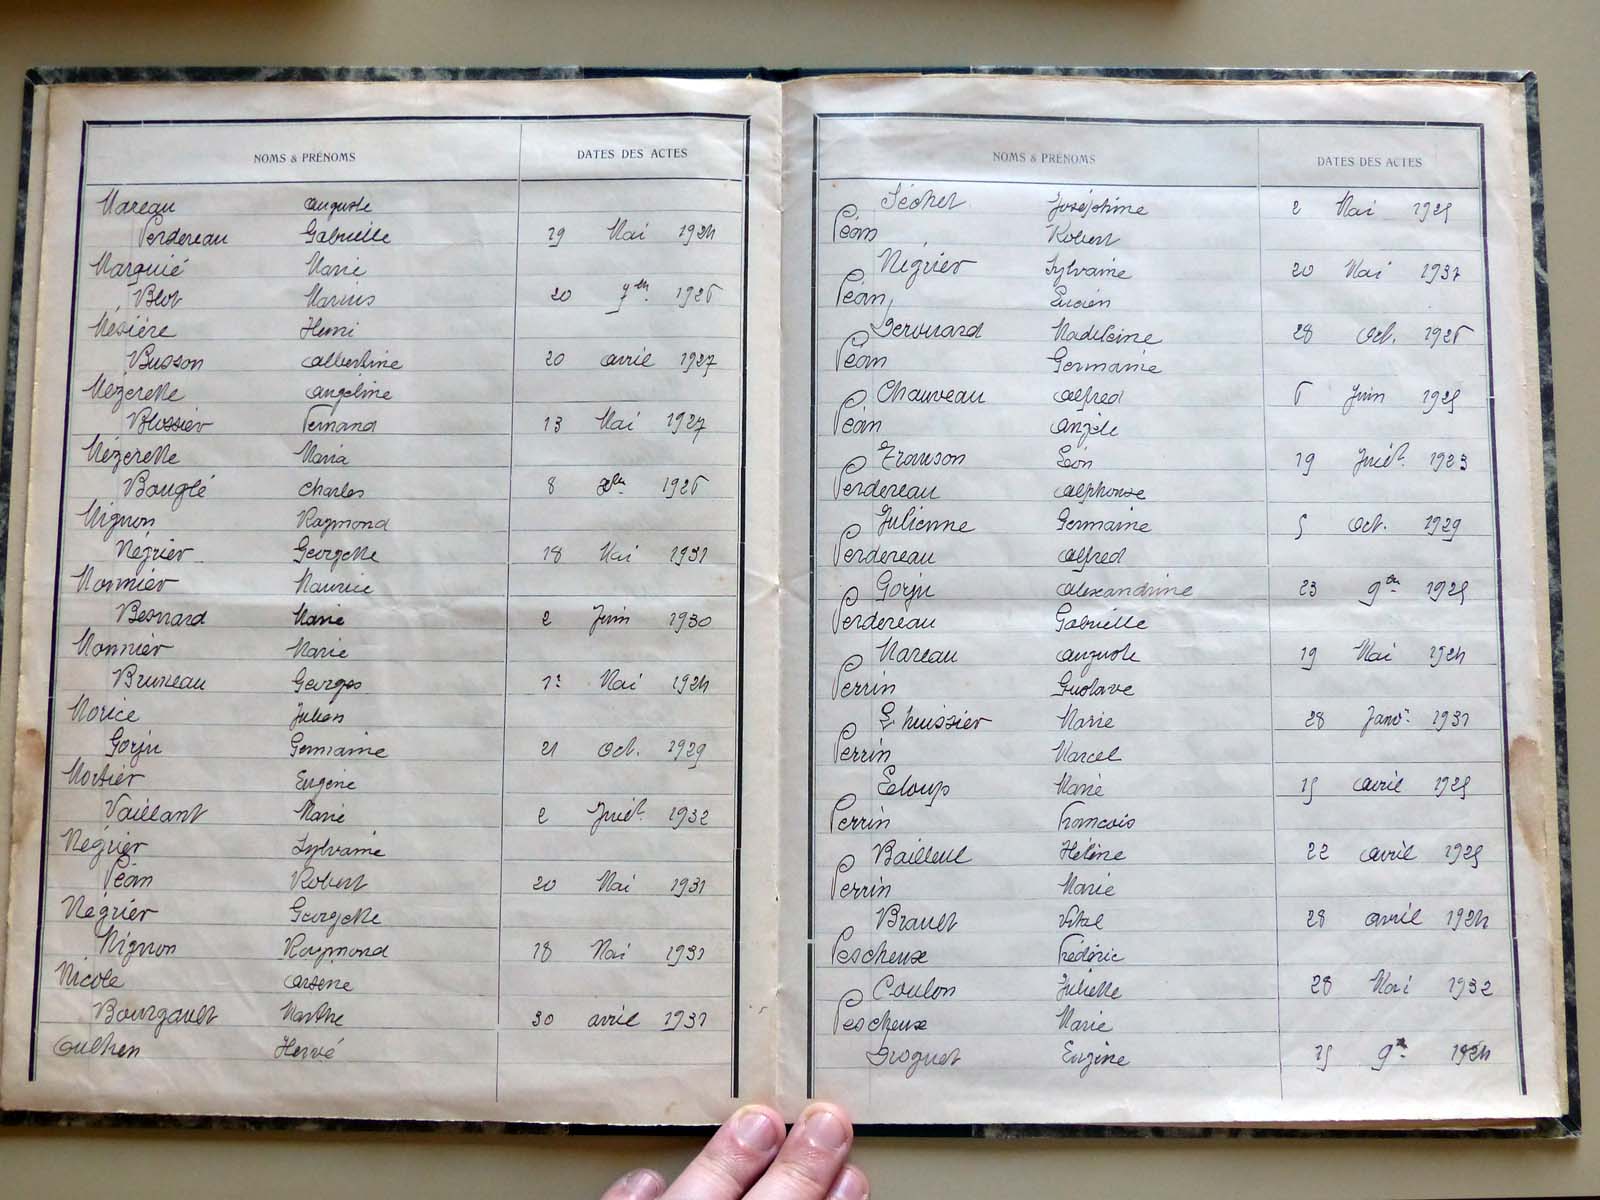 NOMS & PRÉNOMS DATES DES ACTES
Mareau Auguste
Perdereau Gabrielle 19 Mai 1924
Marquié Marie
Blot Marius 20 7bre 1926
Mésière Henri
Busson Albertine 20 avril 1927
Mézerette Angéline
Blossier Fernand 13 Mai 1927
Mézerette Maria
Bouglé Charles 8 1926
Mignon Raymond
Négrier Georgette 18 Mai 1931
Monnier Maurice
Besnard Marie 2 Juin 1930
Monnier Marie
Bruneau Georges 1er Mai 1924
Morice Julien
Gorju Germaine 21 Oct. 1929
Mortier Eugène
Vaillant Marie 2 Juil. 1932
Négrier Sylvaine
Péan Robert 20 Mai 1931
Négrier Georgette
Mignon Raymond 18 Mai 1931
Nicole Arsène
Bourgault Marthe 30 avril 1931
Hervé
NOMS & PRÉNOMS DATES DES ACTES
Séchet Joséphine 2 Mai 1925
Péan Robert
Négrier Sylvaine 20 Mai 1931
Péan Lucien
Madeleine 28 Oct. 1926
Péan Germaine
Chauveau Alfred 6 Juin 1925
Péan Angèle
Franson Léon 19 Juil. 1923
Perdereau Alphonse
Julienne Germaine 5 Oct. 1929
Perdereau Alfred
Gorju Alexandrine 23 9bre 1925
Perdereau Gabrielle
Mareau Auguste 19 Mai 1924
Perrin Gustave
Lhuissier Marie 28 Janv. 1931
Perrin Marcel
Leloup Marie 15 avril 1925
Perrin François
Bailleul Hélène 22 avril 1925
Perrin Marie
Brault Vital 28 avril 1924
Pescheux Frédéric
Coulon Juliette 28 Mai 1932
Pescheux Marie
Drognet Eugène 15 9bre 1924